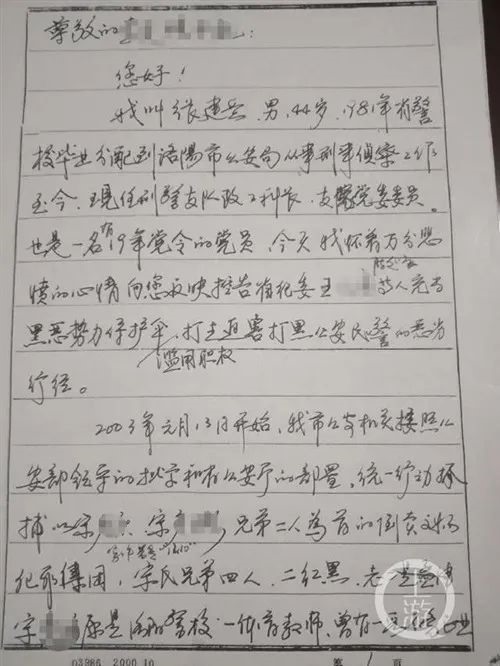 尊敬的
您好！
我叫张建 男，44岁，1981年省警
校毕业分配到洛阳市公安局从事刑事侦察工作
至今，现任刑警支队政工科长，支队党委委员。
也是一名有19年党令的党员，今天我怀着万分悲
愤的心情向您反映控告省纪委王 等人充当
黑恶势力保护伞，滥用职权打击迫害打黑公安民警的恶劣
行径。
2003年元月13日开始，我市公安机关按照公
安部领导的批字和省公安厅的部署，统一行动抓
捕以宋 、宋 兄弟二人为首的倒卖文物
犯罪集团，宋氏兄弟四人，二红黑，老
宋 原是洛阳 校一体育教师，曾有一
03986 2000.10 第 1 页
上游